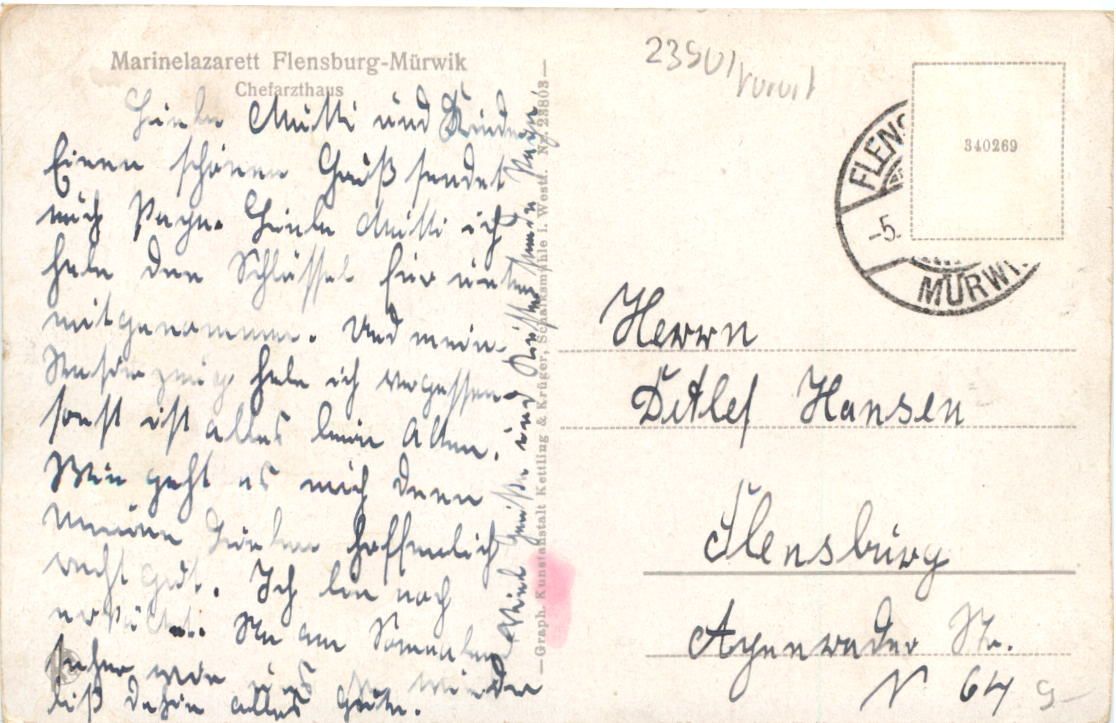 Marinelazarett Flensburg-Mürwik
Chefarzthaus
Liebe Mutti und Kinder
Einen schönen Gruß sendet
euch Papa. Liebe Mutti ich
habe den Schlüssel für unten
mitgenommen. Und mein
habe ich vergessen.
sonst ist alles beim Alten.
Wie geht es euch denn
meine Lieben hoffentlich
recht gut. Ich bin noch
erkältet. Na am Sonnabend
sehen wir uns wieder
bis dahin alles Gute.
Viele Grüße und Küsse sendet Papa
Graph. Kunstanstalt Kettling & Krüger, Schalksmühle i. Westf. Nr. 23803
23501
FLENS
-5.
MÜRWI
340269
Herrn
Detlef Hansen
Flensburg
Apenrader Str.
N 64
9-